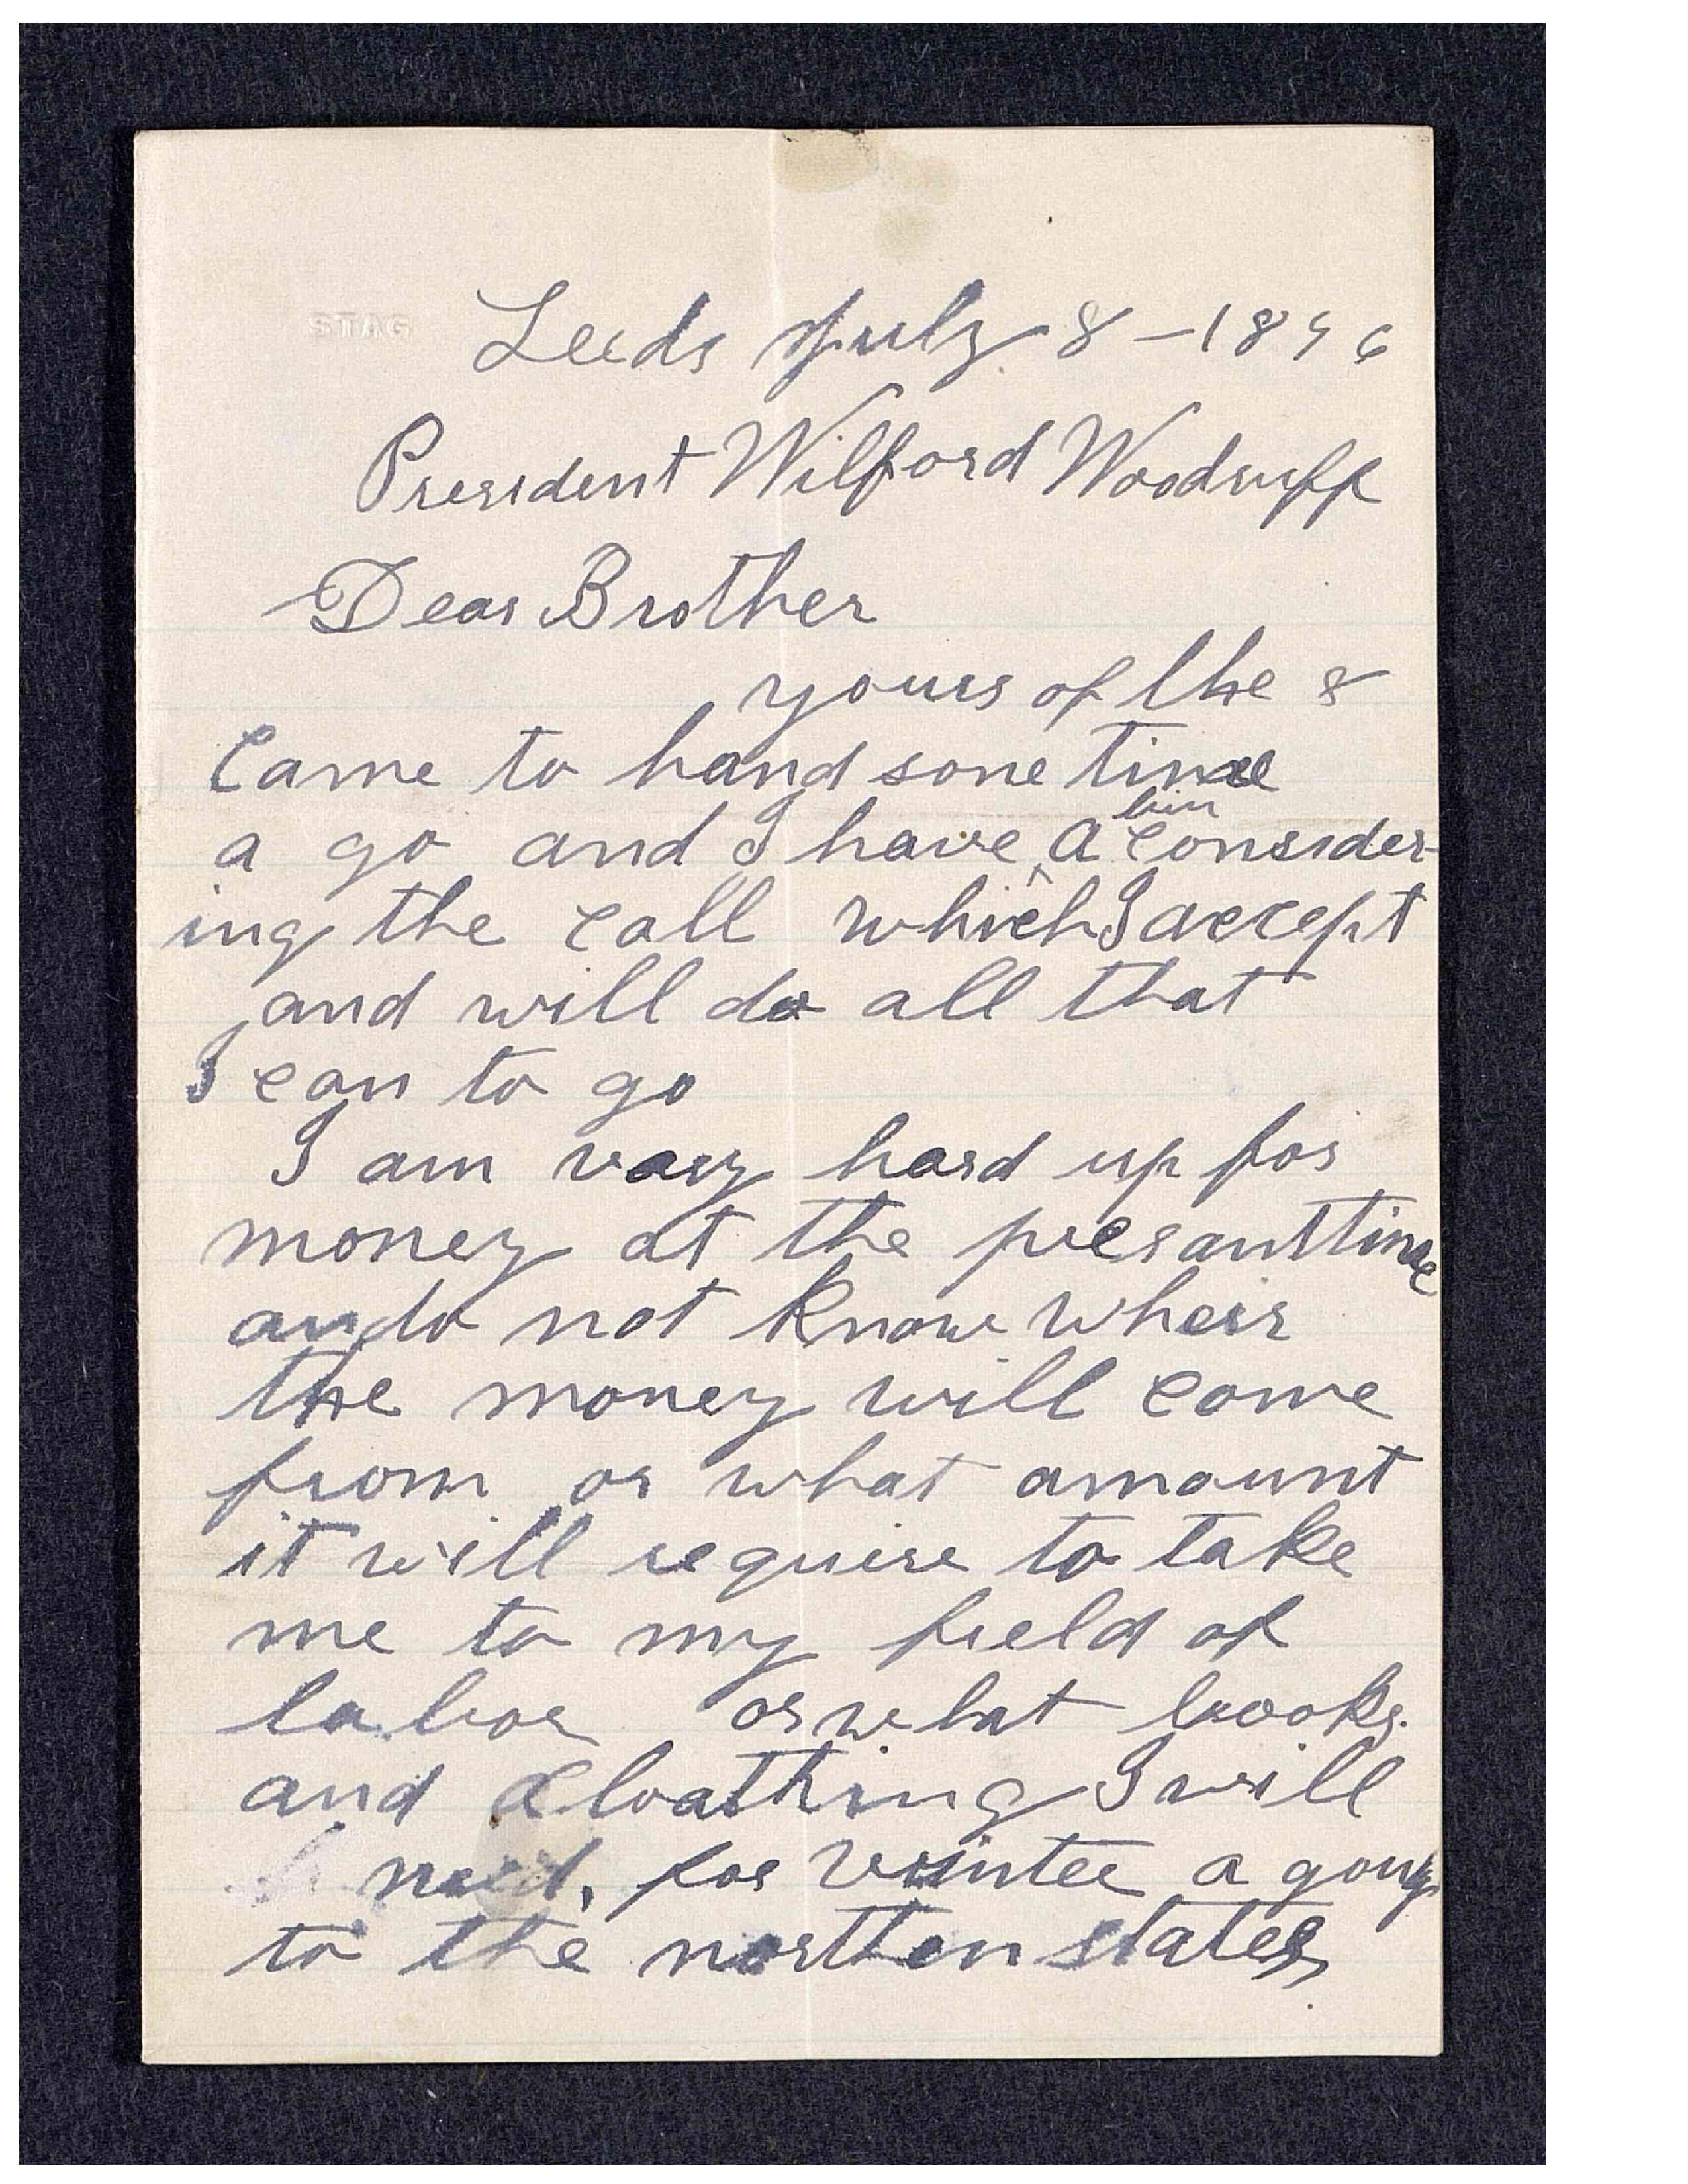 STAG
Leeds July 8 - 1896
President Wilford Woodruff
Dear Brother
yours of the 8
Came to hand sone time
a go and I have bin a consider-
ing the call which I accept
and will do all that
I can to go
I am vary hard up for
money at the presant time
an do not know wheir
the money will come
from or what amount
it will require to take
me to my field of
labor or what books
and cloathing I will
need, for winter a goug
to the northen states